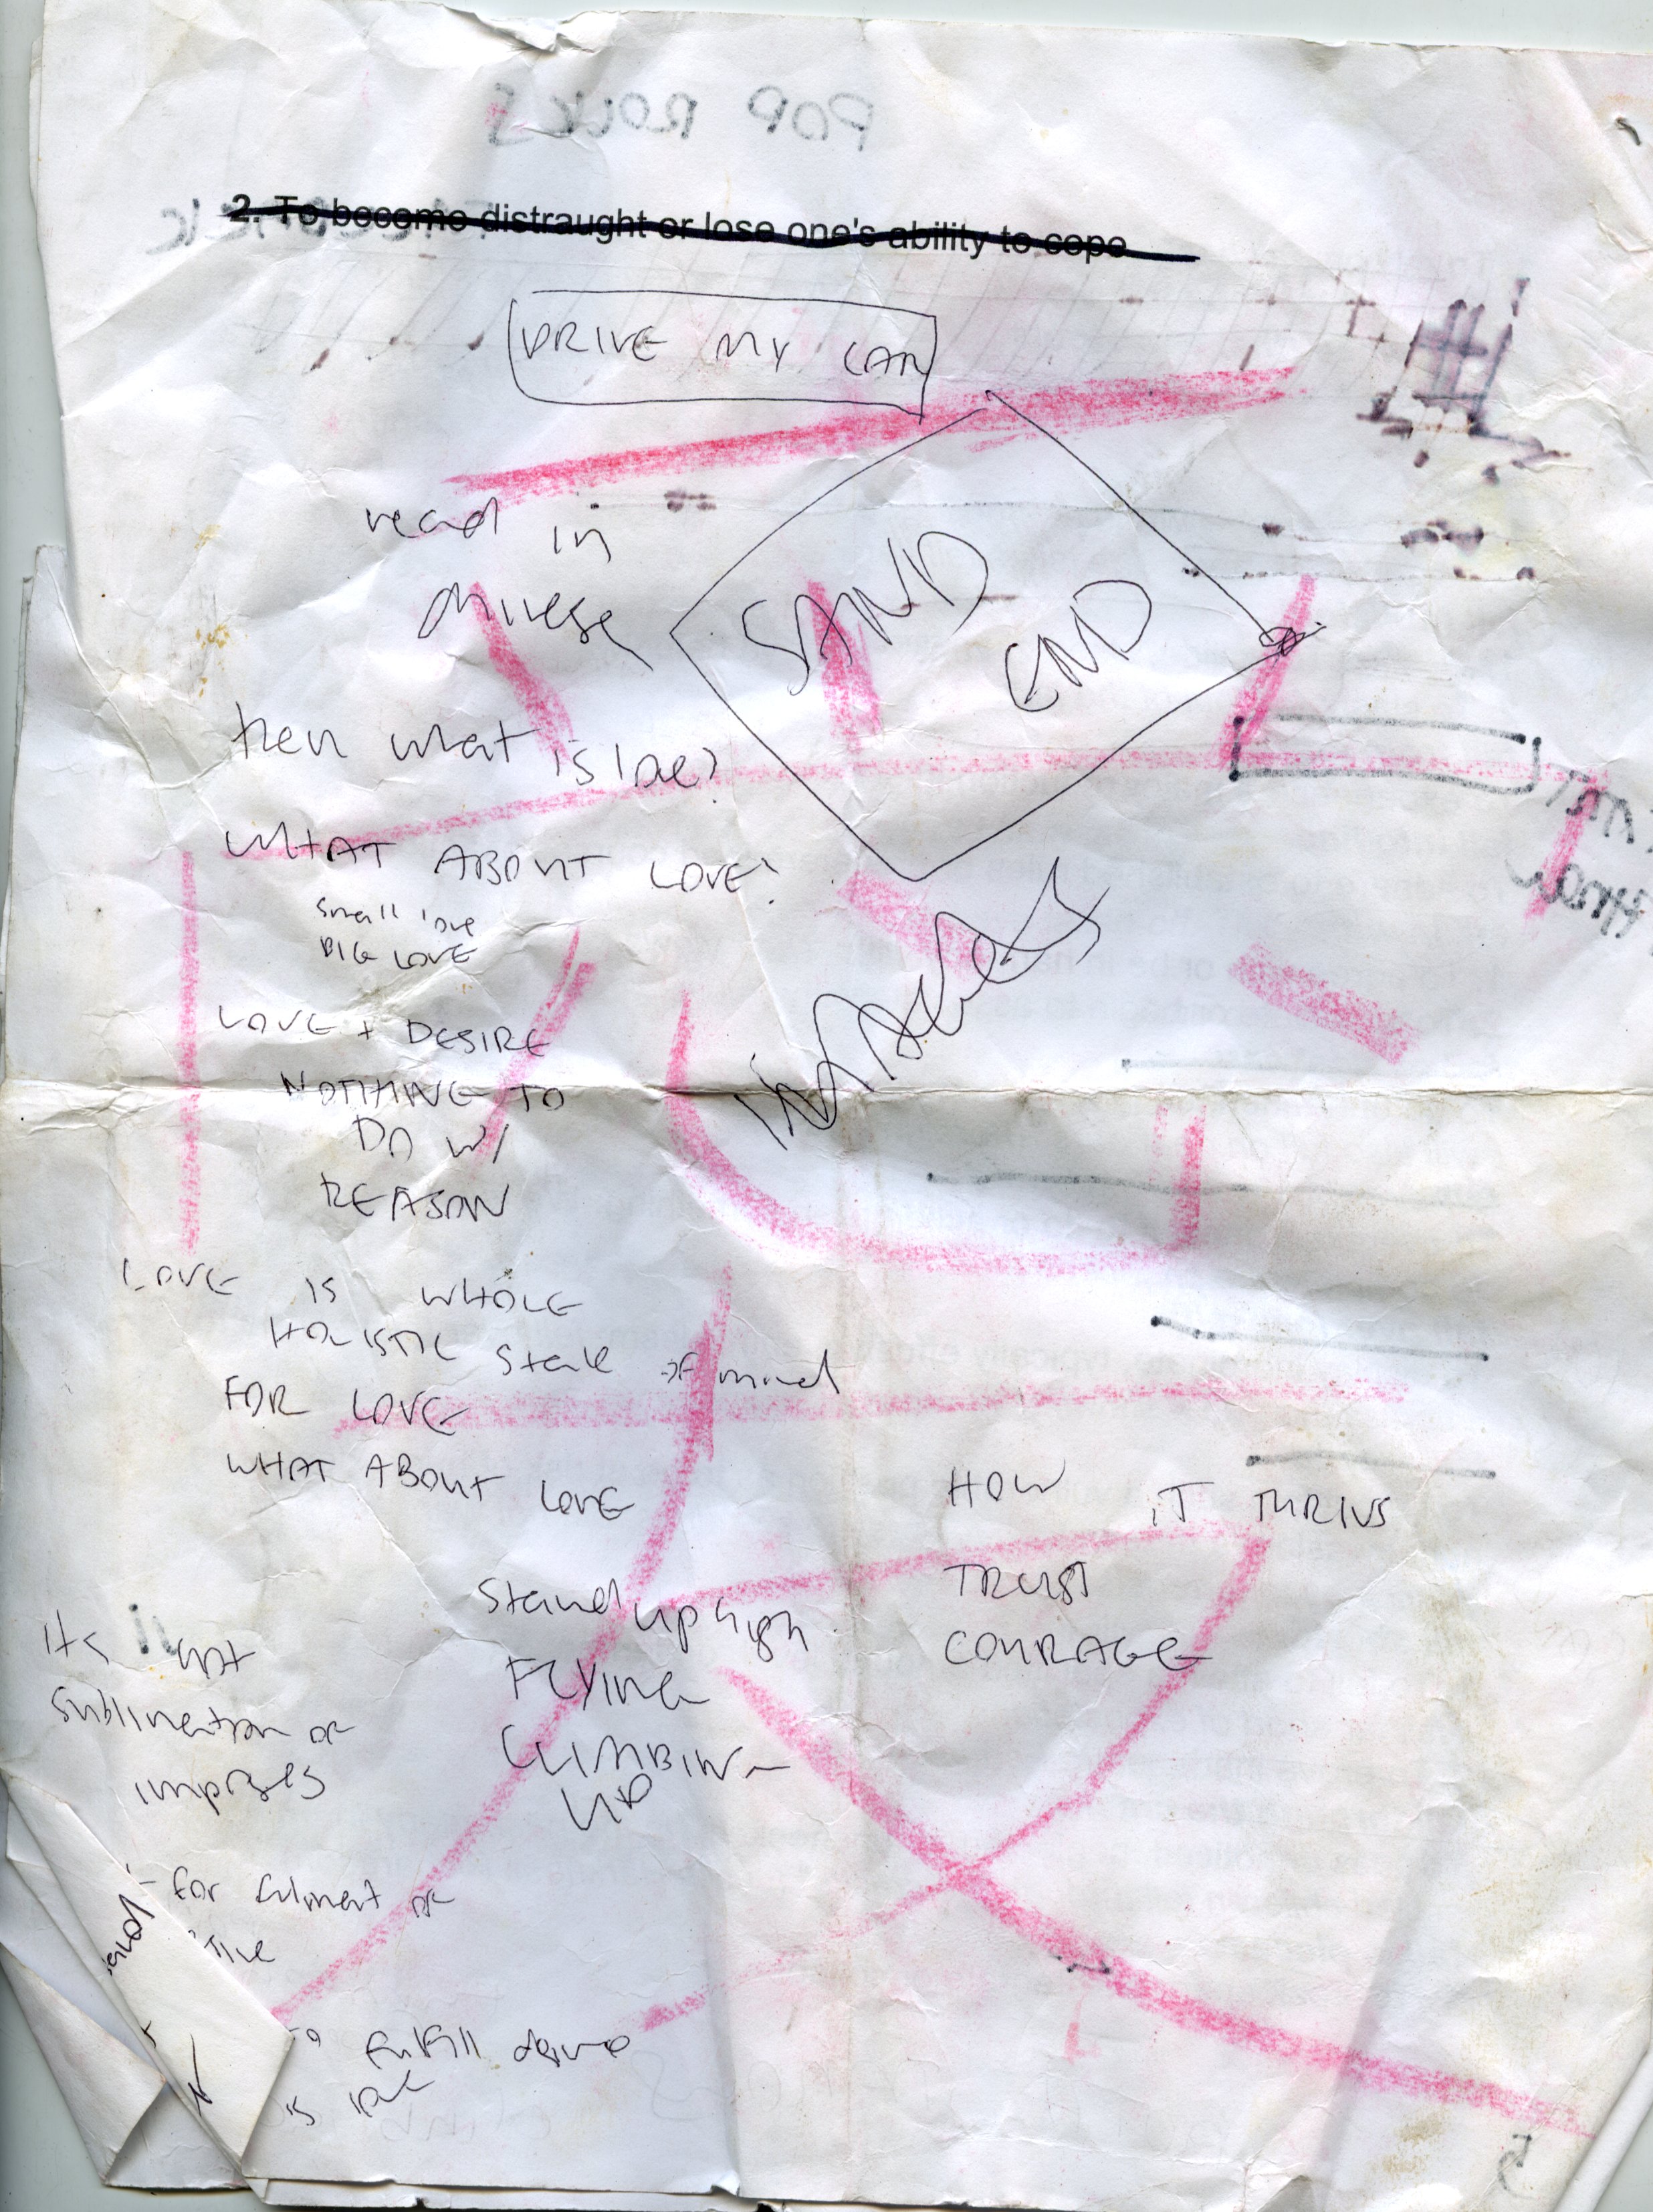 POP ROCKS
2. To become distraught or lose one's ability to cope
DRIVE MY CAR
read in
SAND
END
then what is love?
WHAT ABOUT LOVE?
small love
BIG LOVE
LOVE + DESIRE
NOTHING TO
DO W/
REASON
LOVE IS WHOLE
HOLISTIC state of mind
FOR LOVE
WHAT ABOUT LOVE
HOW IT THRIVS
TRUST
COURAGE
Stand up high
FLYING
CLIMBING
UP
its not
sublimation of
for of
fulfill
is love